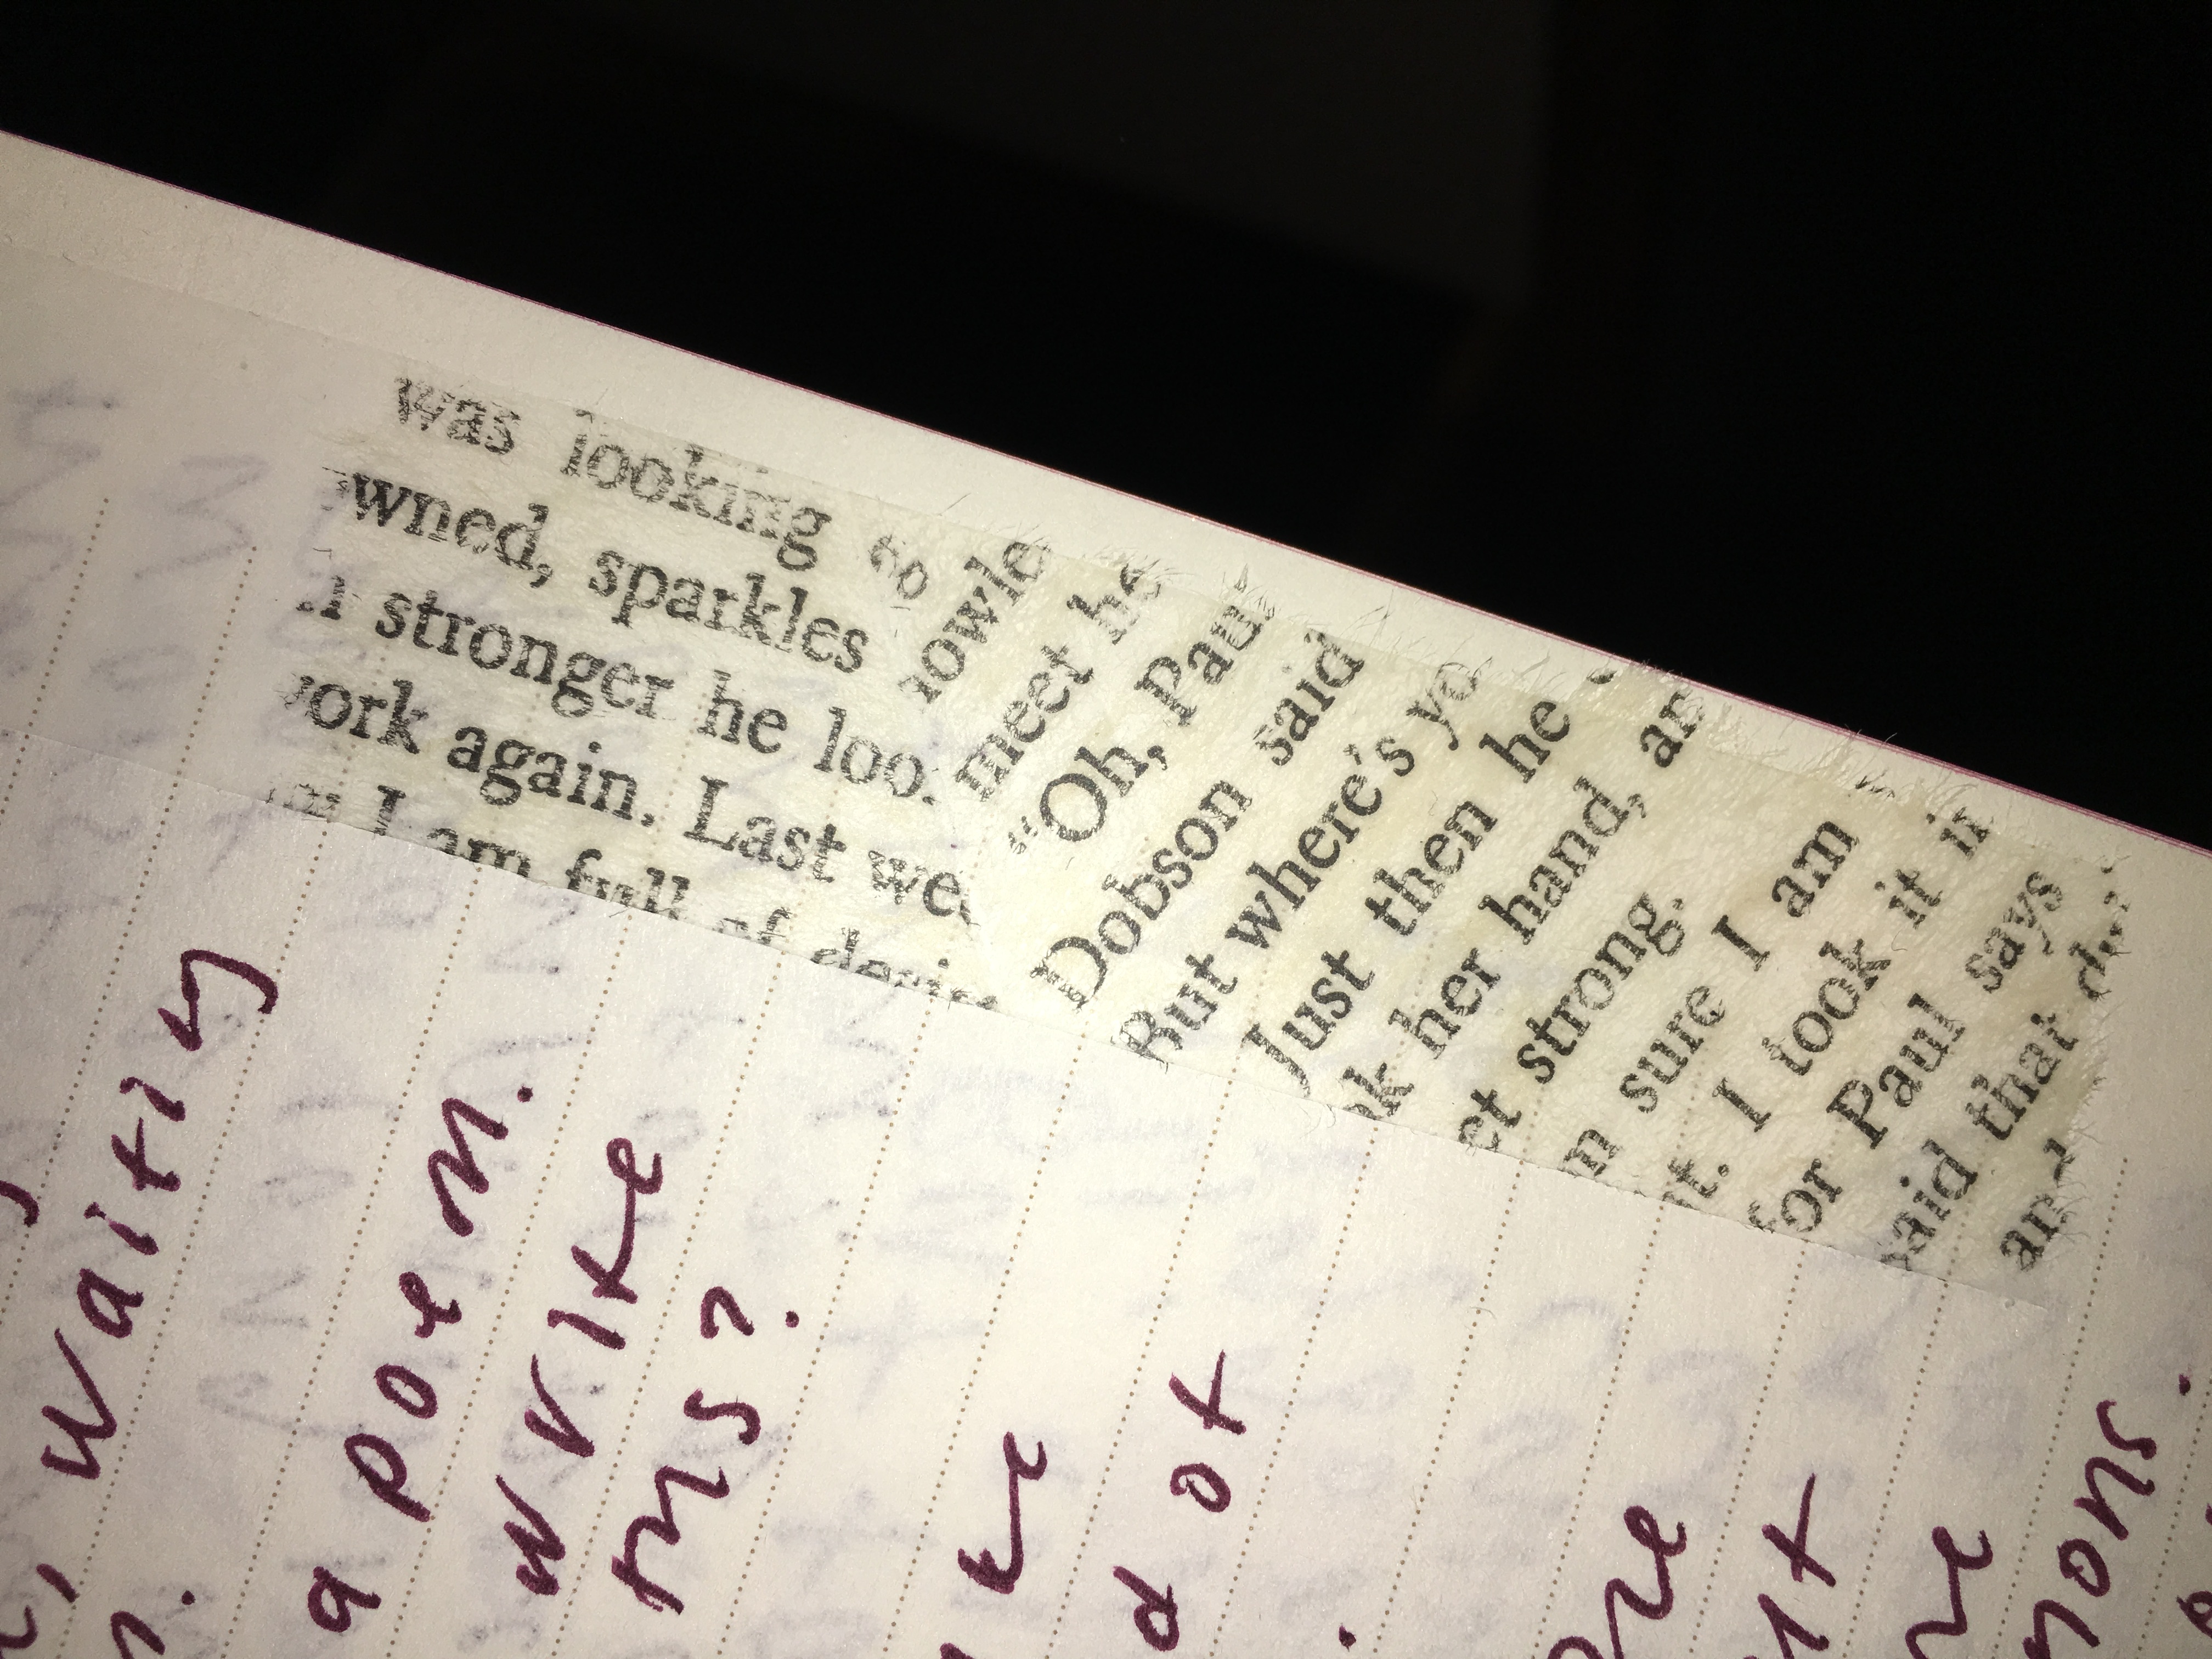 , waiting
a poem.
write
ms?
ke
d of
.
ut
nons.
was looking
wned, sparkles
stronger he loo
ork again. Last we
I am full of
nowle
meet he
"Oh, Pau
Dobson said
But where's yo
Just then he
k her hand, an
ct strong.
m sure I am
t. I took it i
for Paul says
said that
and